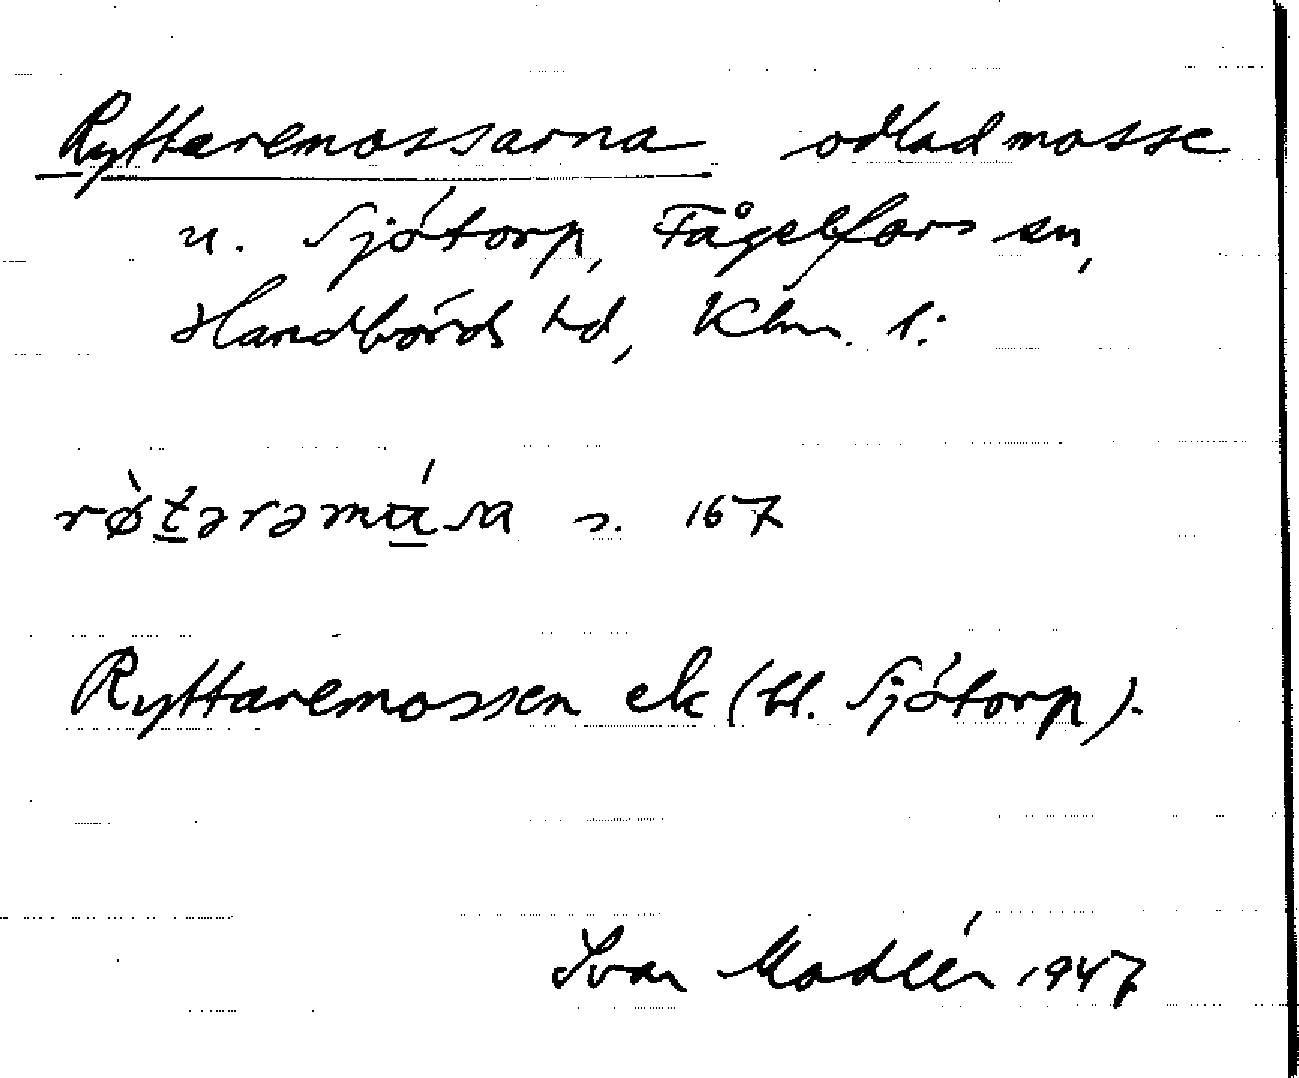 Ryttaremossarna odlad mosse
u. Sjötorp, Fågelfors sn,
Handbörds hd, Klm. l:
rø̀tərəmɑ́sa s. 167
Ryttaremossen ek (bl. Sjötorp).
Ivar Modéer 1947